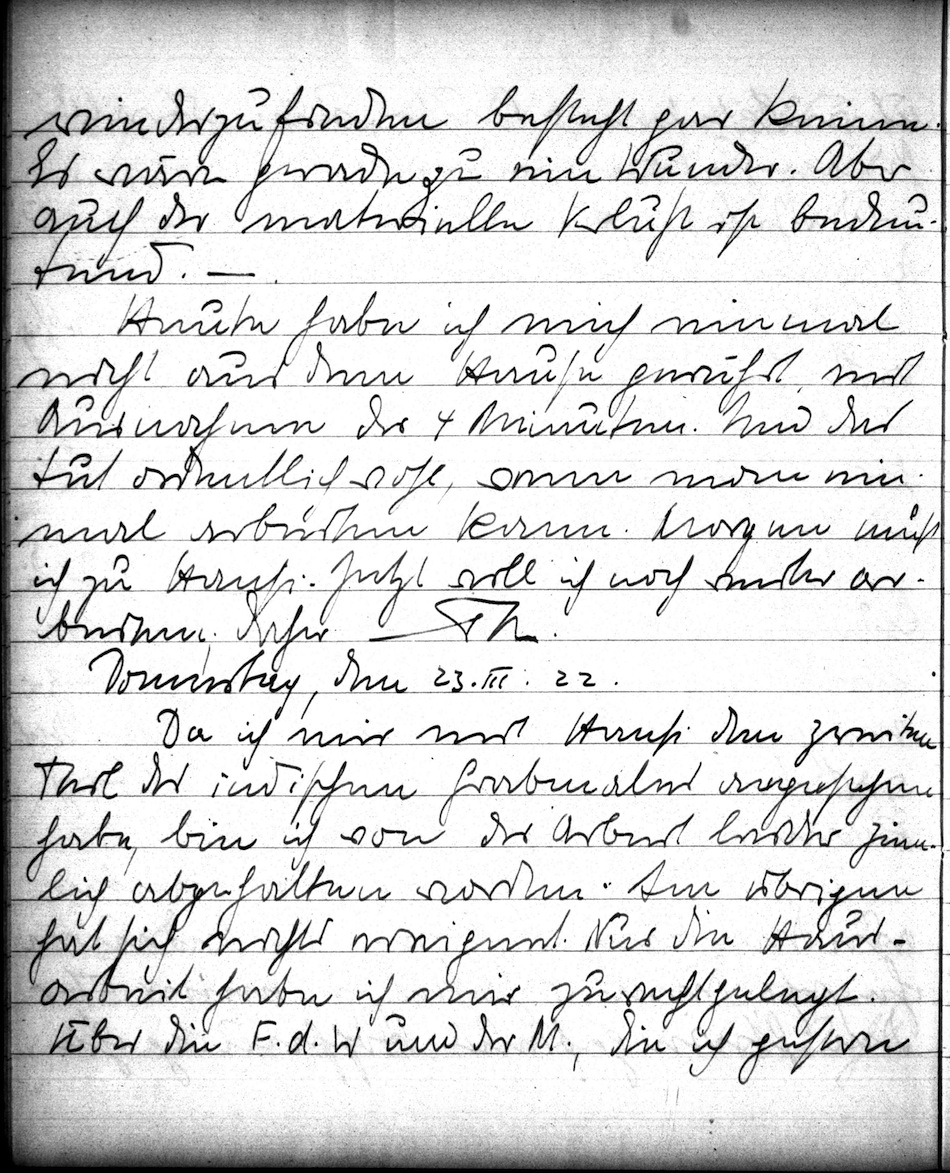 wiederzufinden besteht gar keine.
Es wäre geradezu ein Wunder. Aber
auch der materielle Verlust ist bedeu-
tend. —
Heute habe ich mich einmal
nicht aus dem Hause gerührt, mit
Ausnahme der 4 Minuten. Und das
tut ordentlich wohl, wenn man ein-
mal arbeiten kann. Morgen muß
ich zu Hansi. Jetzt will ich noch weiter ar-
beiten. Daher
Donnerstag, den 23.III.22.
Da ich mir mit Hansi den zweiten
Teil des indischen Grabmales angesehen
habe, bin ich von der Arbeit leider ziem-
lich abgehalten worden. Im übrigen
hat sich nichts ereignet. Nur die Haus-
arbeit habe ich mir zurechtgelegt.
Über die F.d.W und der M., die ich gestern